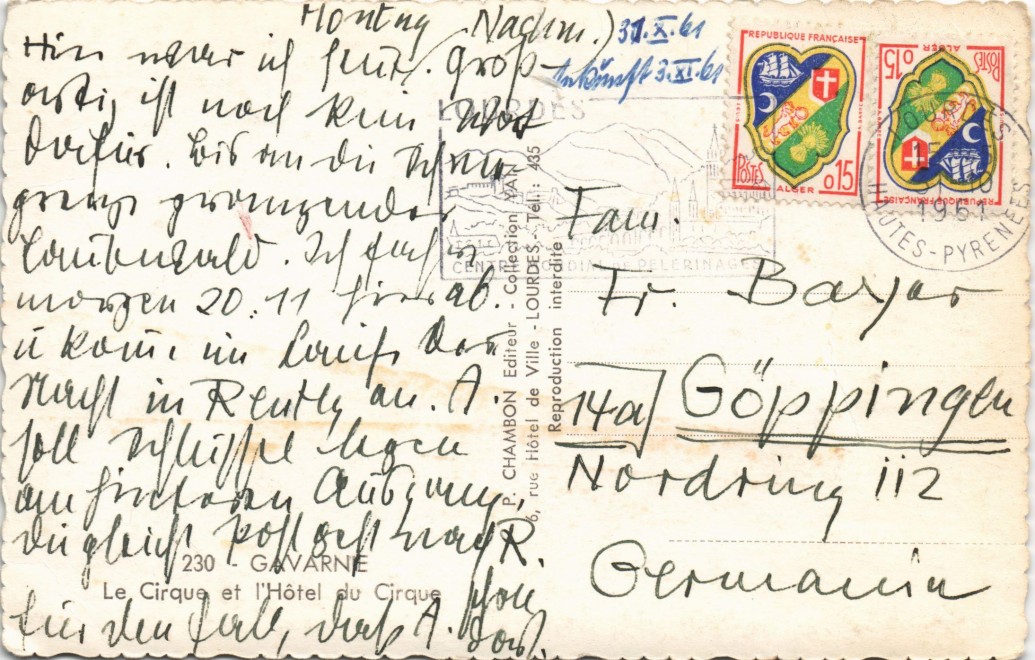 Montag Nachm.) 31.X.61
Ankunft 3.XI.61
Hier war ich heute. Groß-
artig ist noch kein Wort
dafür. Bis an die Schnee-
grenze
Laubwald. Ich fahre
morgen 20.11 hier ab.
u komme im Laufe der
Nacht in Reutlg an. A.
soll Schlüssel legen
am hinteren Ausgang,
Die gleiche Post geht nach R.
für den Fall, daß A. schon
dort.
230 - GAVARNIE
Le Cirque et l'Hôtel du Cirque
P. CHAMBON Editeur - Collection YAN
6, rue Hôtel de Ville - LOURDES - Tel.: 435
Reproduction interdite
LOURDES
CENTRE MONDIAL DE PELERINAGES
REPUBLIQUE FRANÇAISE
POSTES
ALGER
0,15
REPUBLIQUE FRANÇAISE
POSTES
ALGER
0,15
LOURDES
1961
HAUTES-PYRENEES
Fam.
Fr. Bayer
14a) Göppingen
Nordring 112
Germania